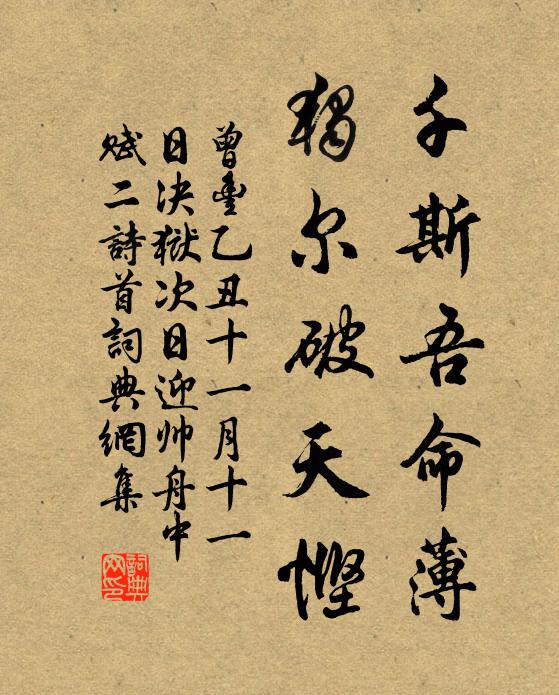 千斯吾命薄
獨尔破天慳
曾豊乙丑十一月十一
日决獄次日迎帅舟中
赋二詩首詞典網集
詞典网印